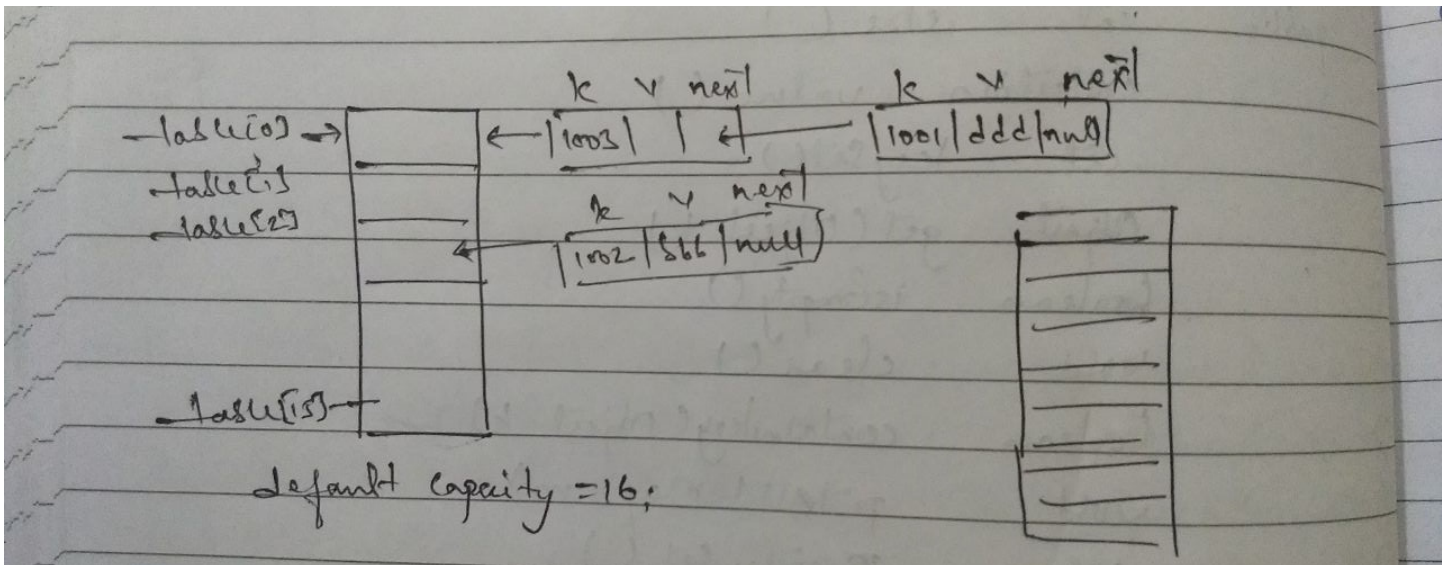 k v next k v next
table[0] 1003 1001 ddd null
table[1]
k v next
table[2] 1002 bbb null
table[15]
default capacity = 16;